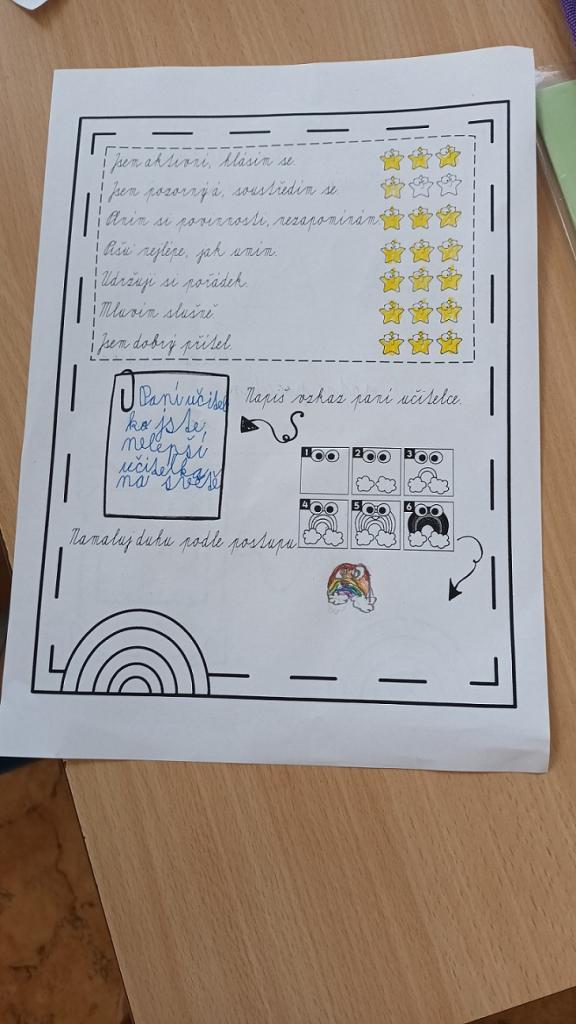 Jsem aktivní, hlásím se.
Jsem pozorný/á, soustředím se.
Plním si povinnosti, nezapomínám.
Píšu nejlépe, jak umím.
Udržuji si pořádek.
Mluvím slušně.
Jsem dobrý přítel.
Napiš vzkaz paní učitelce.
Paní učitel
ko jste
nelepší
učitelka
na světě
1 2 3
4 5 6
Namaluj duhu podle postupu